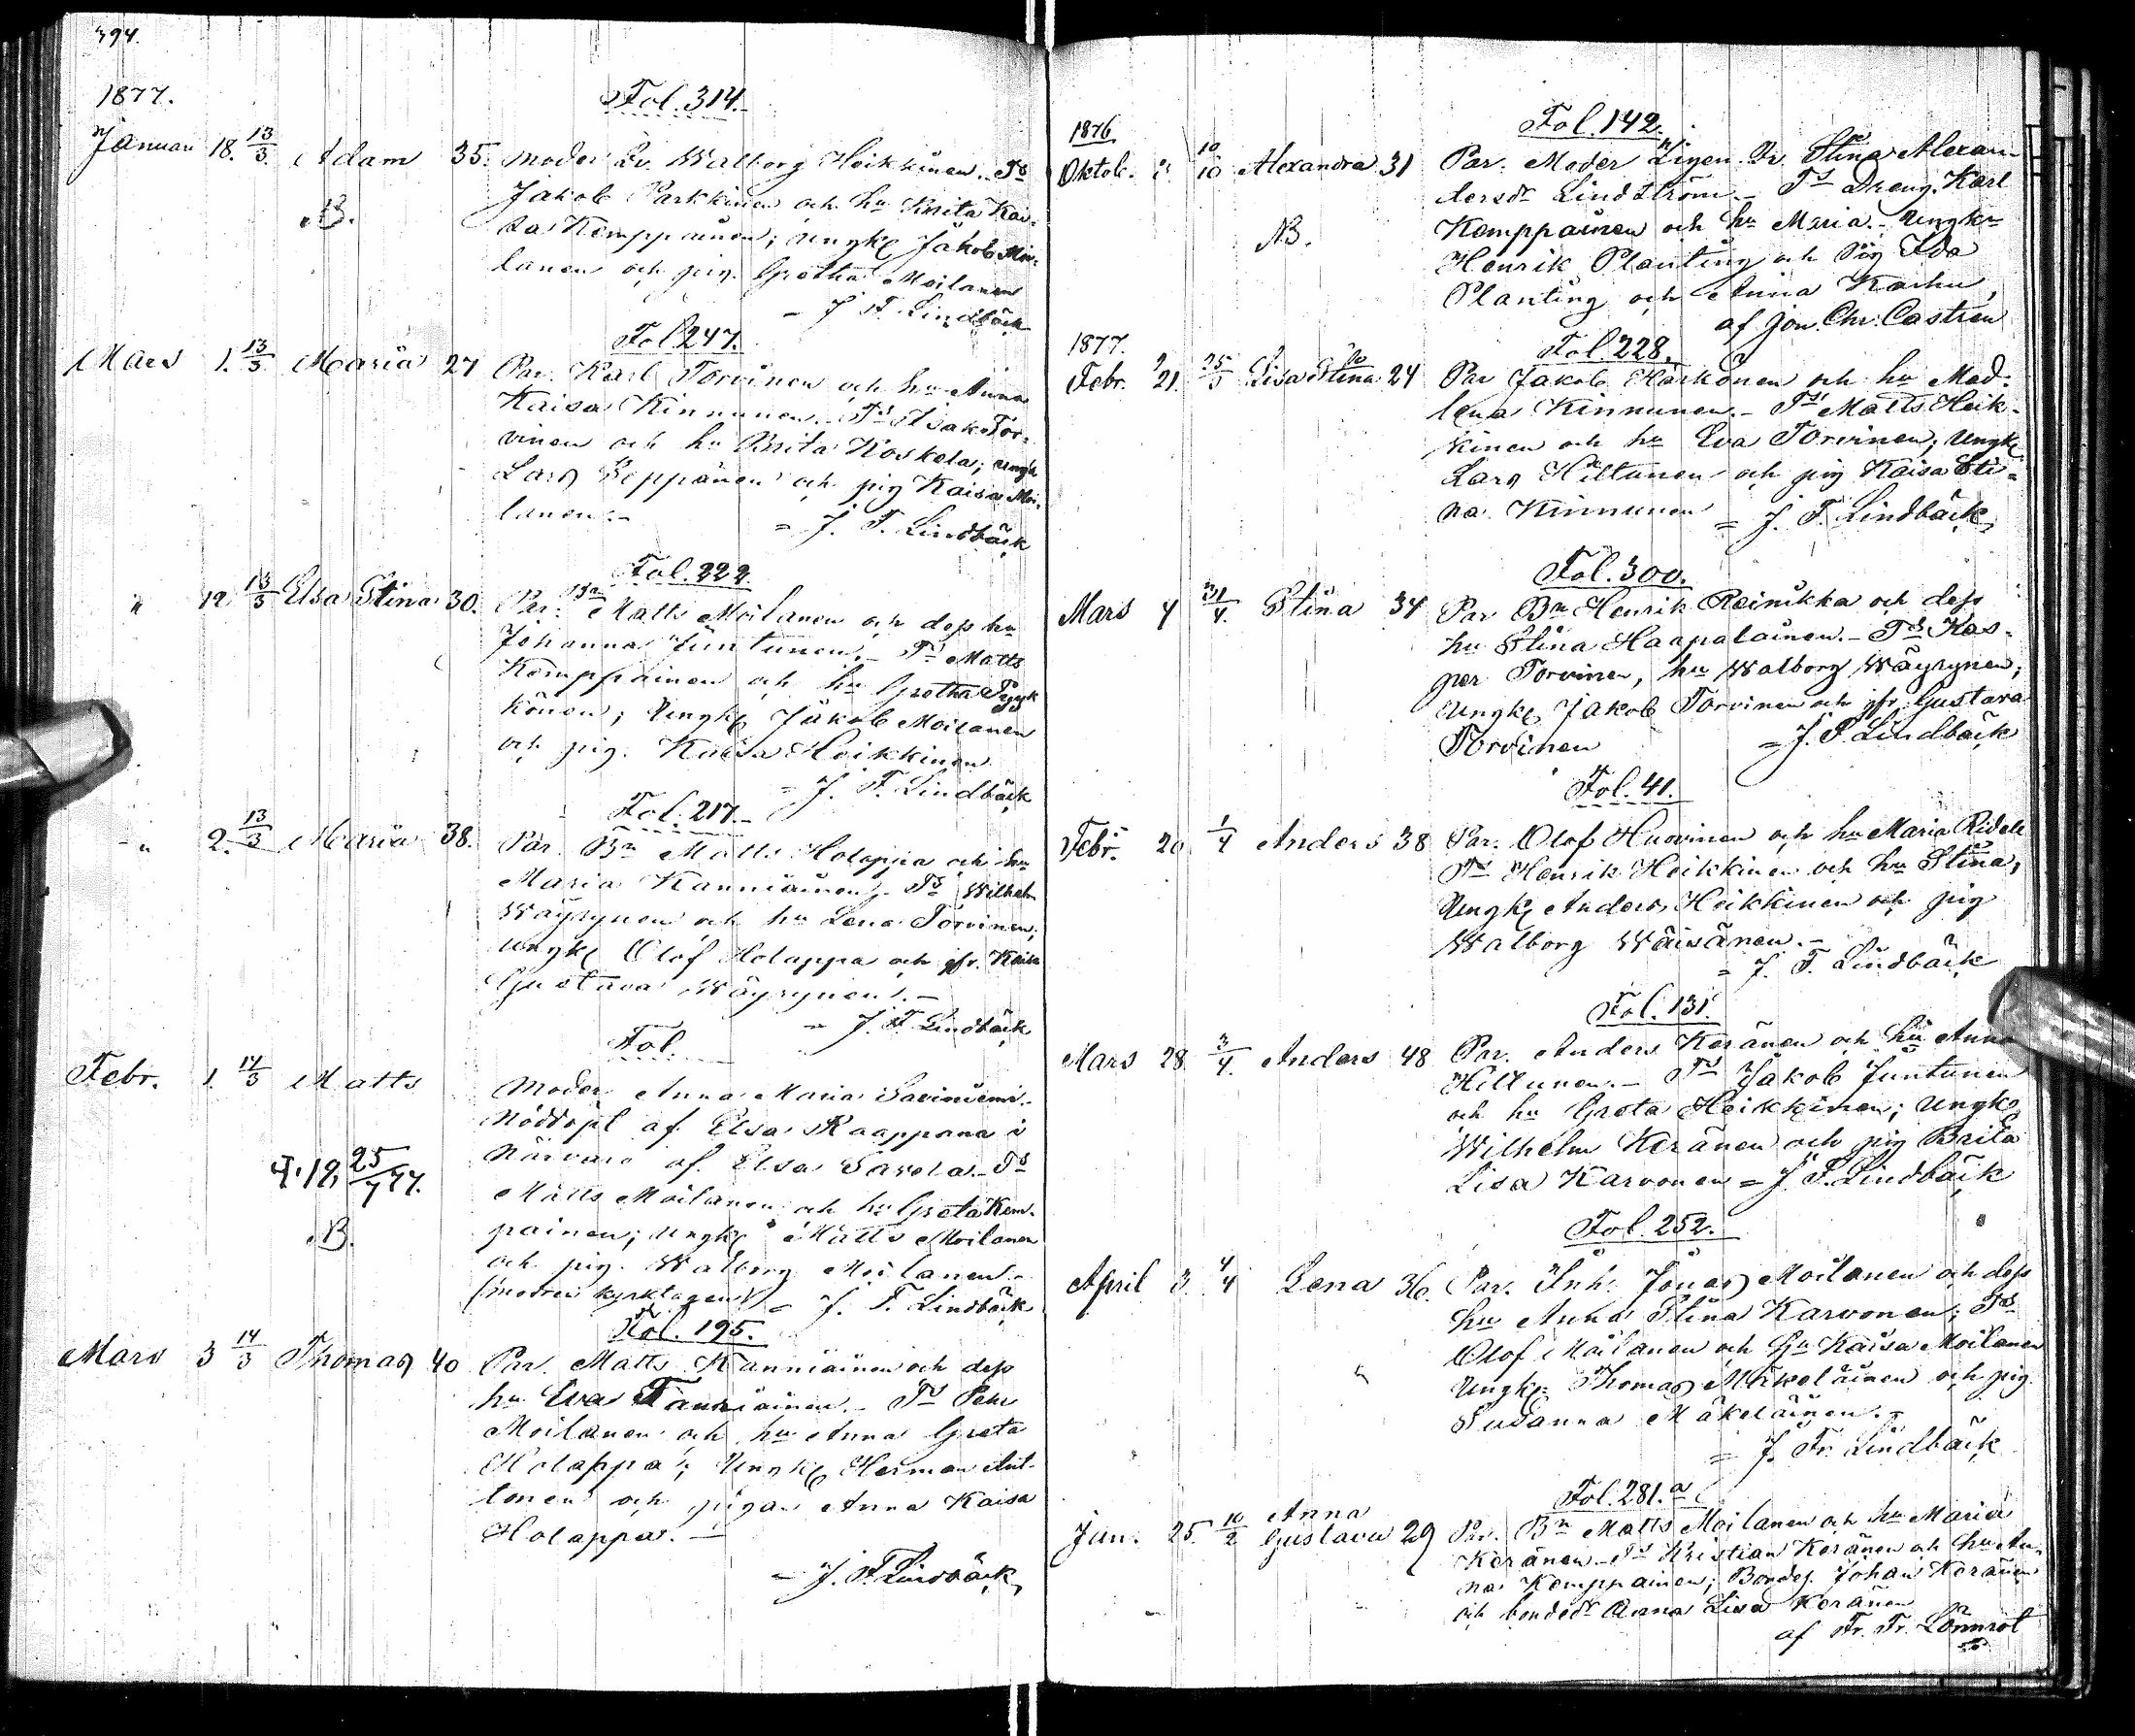 394.
1877.
Fol. 314.
Januari 18. 13/3. Adam 35. Moder Lv. Walborg Heikkinen. Ts
Jakob Parkkinen och hu Brita Kai-
NB.
sa Kemppainen; ungk Jakob Moi-
lanen och pig. Gretha Moilanen
= J. F. Lindbäck
Fol 247.
Mars 1. 13/3. Maria 27 Par. Karl Torvinen och hu Anna
Kaisa Kinnunen. Ts Isak Tor-
vinen och hu Brita Koskela; ungk
Lars Seppänen och pig Kaisa Moi-
lanen. -
= J. F. Lindbäck
Fol. 222.
" 12 13/3 Elsa Stina 30. Par. Bn Matts Moilanen och dess hu
Johanna Juntunen. - Ts Matts
Kemppainen och hu Gretha Pyyk
könen; Ungk Jakob Moilanen
och pig. Kaisa Heikkinen
= J. F. Lindbäck
Fol. 217. -
" 2. 13/3 Maria 38. Par. Bn Matts Holappa och hu
Maria Kanniainen. Ts Wilhelm
Wäyrynen och hu Lena Torvinen;
Ungk Olof Holappa och jfr. Kaisa
Gustava Wäyrynen. -
= J. F. Lindbäck
Fol.
Febr. 1. 14/3 Matts
Moder Anna Maria Saviniemi.
Nöddöpt af Elsa Kaappana i
Närvaro af Elsa Savola. - Ts
25/7 77.
Matts Moilanen och hu Greta Kem-
NB.
painen; Ungk Matts Moilanen
och pig. Walborg Moilanen.
(modren kyrktagen) = J. F. Lindbäck
Fol. 195.
Mars 3 14/3 Thomas 40 Par. Matts Kanniainen och dess
hu Eva Tanniainen. - Ts Pehr
Moilanen och hu Anna Greta
Holappa; Ungk Herman Ant-
tonen och pigan Anna Kaisa
Holappa. -
= J. F. Lindbäck
Fol. 142.
1876
Oktob. 10/10 Alexandra 31 Par. Moder Stina Alexan-
dersdr Lindström. - Ts Dreng. Karl
NB.
Kemppainen och hu Maria. - Ungkn
Henrik Planting och Pig Ida
Planting och Anna Karhu,
af Jon. Chr. Castrén
1877.
Fol. 228.
Febr. 21. 25/3 Lisa Stina 24 Par Jakob Härkönen och hu Mad-
lena Kinnunen. - Ts Matts Heik-
kinen och hu Eva Torvinen; Ungk
Lars Hiltunen och pig Kaisa Sti-
na Kinnunen = J. F. Lindbäck
Fol. 300.
Mars 4 31/4. Stina 34 Par Bn Henrik Reinikka och dess
hu Stina Haapalainen. - Ts Kas-
per Torvinen, hu Walborg Wäyrynen;
Ungk Jakob Torvinen och jfr. Gustava
Torvinen = J. F. Lindbäck
Fol. 41.
Febr. 20 1/4 Anders 38 Par. Olof Huovinen och hu Maria
Ts Henrik Heikkinen och hu Stina;
Ungk Anders Heikkinen och pig
Walborg Wäisänen. -
= J. F. Lindbäck
Fol. 131.
Mars 28 3/4. Anders 48 Par. Anders Keränen och hu Anna
Hiltunen. - Ts Jakob Juntunen
och hu Greta Heikkinen; Ungk
Wilhelm Keränen och pig Brita
Lisa Karvonen = J. F. Lindbäck
Fol. 252.
April 3 4/4 Lena 36. Par. Inh. Jonas Moilanen och dess
hu Anna Stina Karvonen; Ts
Olof Moilanen och hu Kaisa Moilanen
Ungk. Thomas Mikkelainen och pig.
Susanna Mäkeläinen. -
= J. Fr. Lindbäck
Fol. 281.a
Jan. 25. 10/2 Anna Gustava 29 Par. Bn Matts Moilanen och hu Maria
Keränen. Ts Kristian Keränen och hu An-
na Kemppainen; Bondes. Johan Keränen
och bondedr Anna Lisa Keränen
af Fr. Fr. Lönnrot